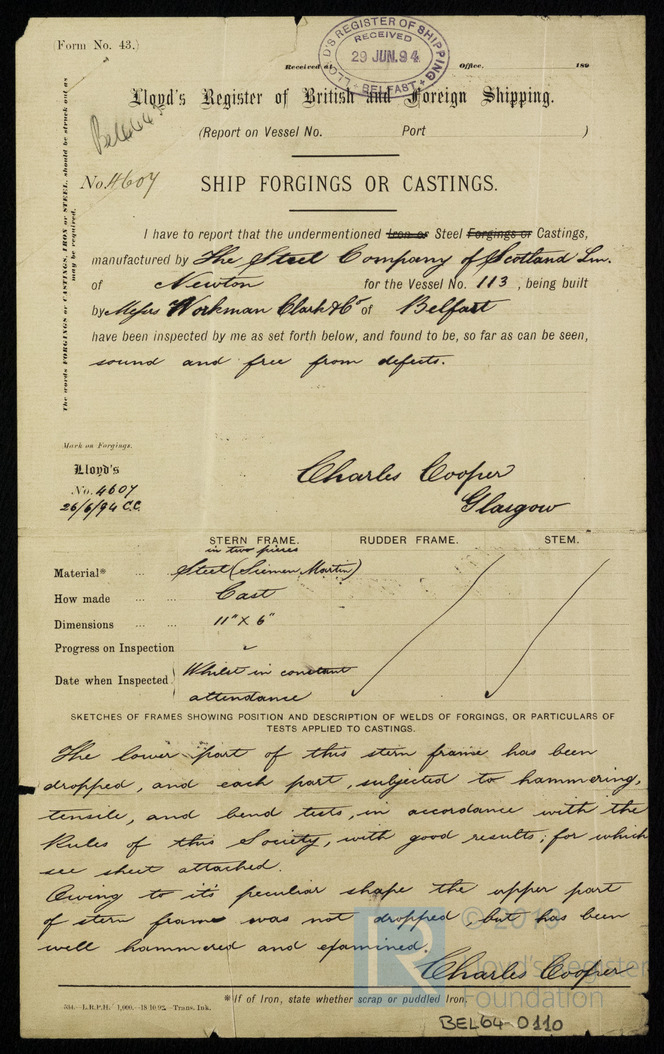 (Form No. 43.)
LLOYD'S REGISTER OF SHIPPING
RECEIVED
29 JUN.94
BELFAST
Received at Office. 189
Lloyd's Register of British and Foreign Shipping.
Bel64
(Report on Vessel No. Port )
No. 4607
SHIP FORGINGS OR CASTINGS.
The words FORGINGS or CASTINGS, IRON or STEEL, should be struck out as
may be required.
I have to report that the undermentioned Iron or Steel Forgings or Castings,
manufactured by The Steel Company of Scotland Lim.
of Newton for the Vessel No. 113, being built
by Messrs Workman Clark & Co of Belfast
have been inspected by me as set forth below, and found to be, so far as can be seen,
sound and free from defects.
Mark on Forgings.
Lloyd's
No. 4607
26/6/94 C.C.
Charles Cooper
Glasgow
STERN FRAME. RUDDER FRAME. STEM.
in two pieces
Material* ... Steel (Siemen Martin)
How made ... ... Cast
Dimensions ... ... 11" X 6"
Progress on Inspection
Date when Inspected Whilst in constant
attendance
SKETCHES OF FRAMES SHOWING POSITION AND DESCRIPTION OF WELDS OF FORGINGS, OR PARTICULARS OF
TESTS APPLIED TO CASTINGS.
The lower part of this stern frame has been
dropped, and each part, subjected to hammering,
tensile, and bend tests, in accordance with the
Rules of this Society, with good results; for which
see sheet attached.
Owing to it's peculiar shape the upper part
of stern frame was not dropped, but has been
well hammered and examined.
Charles Cooper
* If of Iron, state whether scrap or puddled Iron.
534.—L.R.P.H. 1,000.—18.10.92.—Trans. Ink.
BEL64-0110
LR
© 2019
Lloyd's Register
Foundation